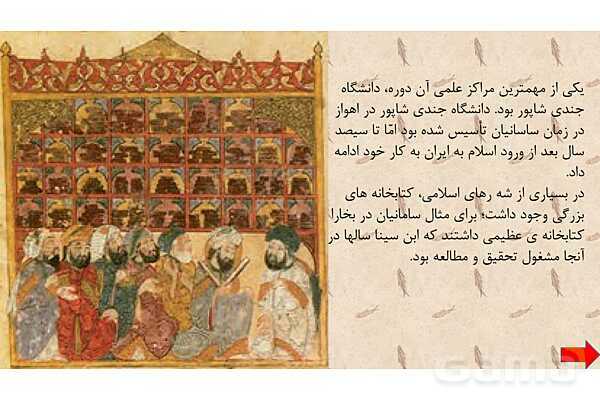 یکی از مهمترین مراکز علمی آن دوره، دانشگاه
جندی شاپور بود. دانشگاه جندی شاپور در اهواز
در زمان ساسانیان تأسیس شده بود امّا تا سیصد
سال بعد از ورود اسلام به ایران به کار خود ادامه
داد.
در بسیاری از شه رهای اسلامی، کتابخانه های
بزرگی وجود داشت؛ برای مثال سامانیان در بخارا
کتابخانه ی عظیمی داشتند که ابن سینا سالها در
آنجا مشغول تحقیق و مطالعه بود.
Gama